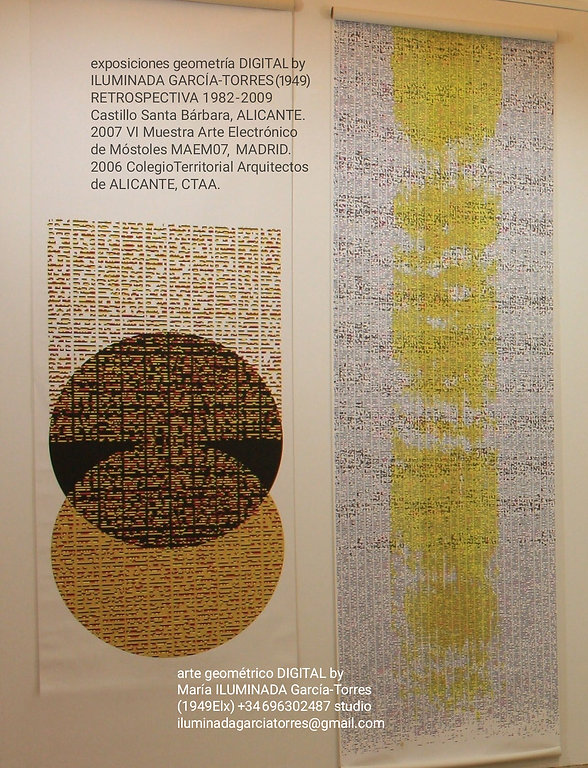 exposiciones geometría DIGITAL by
ILUMINADA GARCÍA-TORRES (1949)
RETROSPECTIVA 1982-2009
Castillo Santa Bárbara, ALICANTE.
2007 VI Muestra Arte Electrónico
de Móstoles MAEM07, MADRID.
2006 ColegioTerritorial Arquitectos
de ALICANTE, CTAA.
arte geométrico DIGITAL by
María ILUMINADA García-Torres
(1949Elx) +34696302487 studio
iluminadagarciatorres@gmail.com